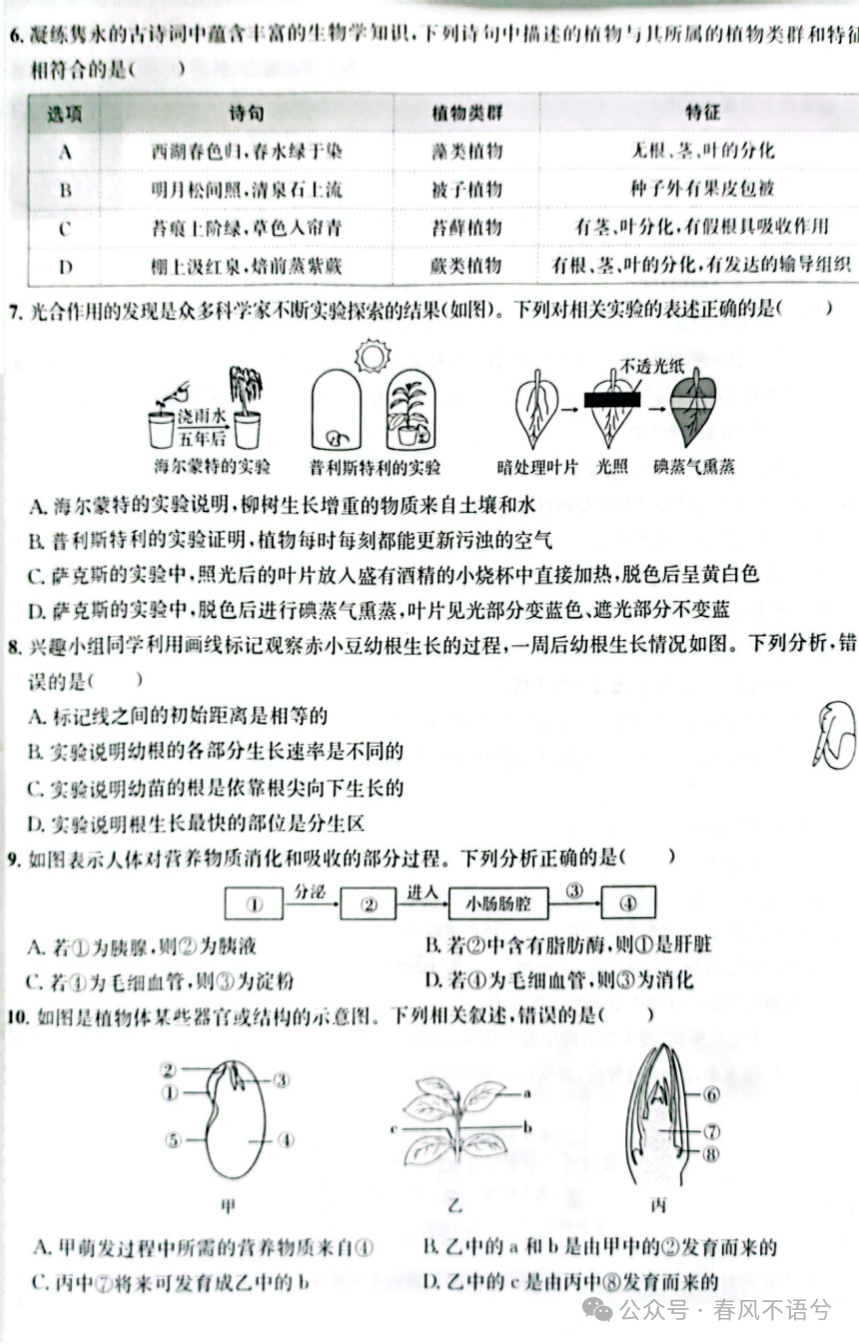 6. 凝练隽永的古诗词中蕴含丰富的生物学知识,下列诗句中描述的植物与其所属的植物类群和特征
相符合的是(  )
选项 诗句 植物类群 特征
A 西湖春色归,春水绿于染 藻类植物 无根、茎、叶的分化
B 明月松间照,清泉石上流 被子植物 种子外有果皮包被
C 苔痕上阶绿,草色入帘青 苔藓植物 有茎、叶分化,有假根具吸收作用
D 棚上汲红泉,焙前蒸紫蕨 蕨类植物 有根、茎、叶的分化,有发达的输导组织
7. 光合作用的发现是众多科学家不断实验探索的结果(如图)。下列对相关实验的表述正确的是(  )
不透光纸
浇雨水
五年后
海尔蒙特的实验 普利斯特利的实验 暗处理叶片 光照 碘蒸气熏蒸
A. 海尔蒙特的实验说明,柳树生长增重的物质来自土壤和水
B. 普利斯特利的实验证明,植物每时每刻都能更新污浊的空气
C. 萨克斯的实验中,照光后的叶片放入盛有酒精的小烧杯中直接加热,脱色后呈黄白色
D. 萨克斯的实验中,脱色后进行碘蒸气熏蒸,叶片见光部分变蓝色、遮光部分不变蓝
8. 兴趣小组同学利用画线标记观察赤小豆幼根生长的过程,一周后幼根生长情况如图。下列分析,错
误的是(  )
A. 标记线之间的初始距离是相等的
B. 实验说明幼根的各部分生长速率是不同的
C. 实验说明幼苗的根是依靠根尖向下生长的
D. 实验说明根生长最快的部位是分生区
9. 如图表示人体对营养物质消化和吸收的部分过程。下列分析正确的是(  )
① 分泌 ② 进入 小肠肠腔 ③ ④
A. 若①为胰腺,则②为胰液 B. 若②中含有脂肪酶,则①是肝脏
C. 若④为毛细血管,则③为淀粉 D. 若④为毛细血管,则③为消化
10. 如图是植物体某些器官或结构的示意图。下列相关叙述,错误的是(  )
② ① ③ ⑤ ④
a c b
⑥ ⑦ ⑧
甲 乙 丙
A. 甲萌发过程中所需的营养物质来自④ B. 乙中的 a 和 b 是由甲中的②发育而来的
C. 丙中⑦将来可发育成乙中的 b D. 乙中的 c 是由丙中⑧发育而来的
公众号 · 春风不语兮